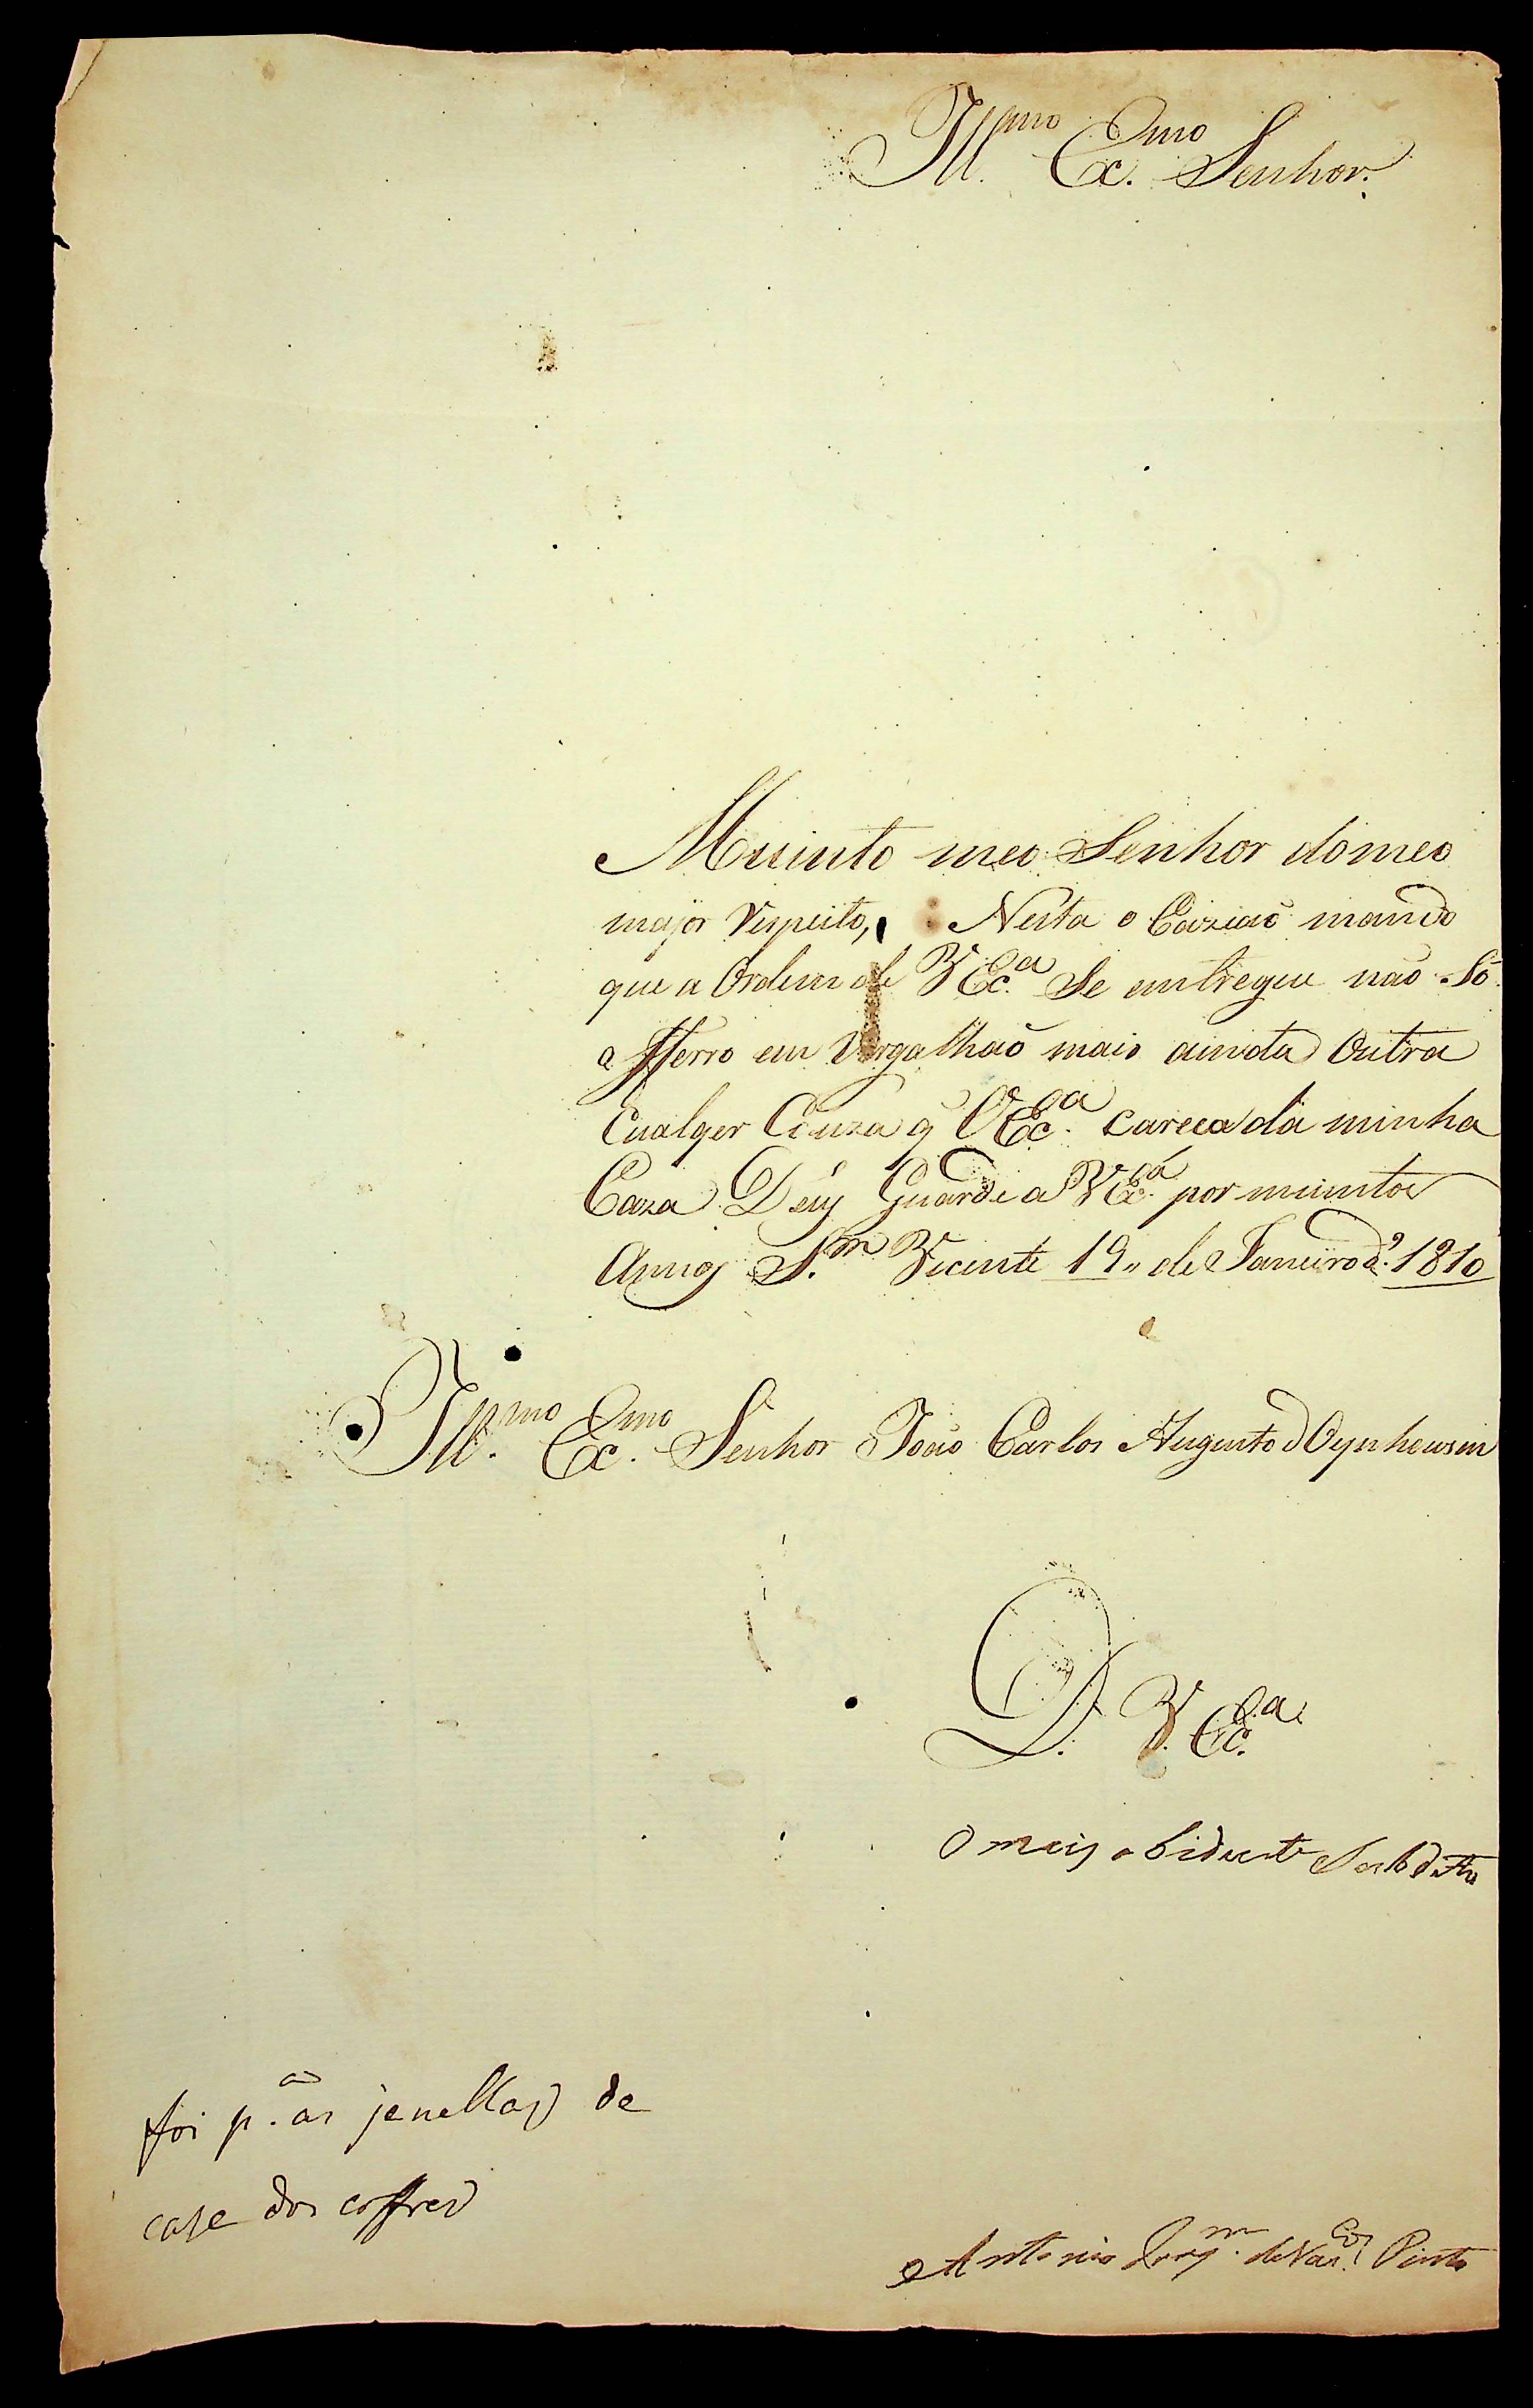 Ill.mo Ex.mo Senhor.
Muinto meo Senhor do meo
major Respeito, Nesta o Caziaõ mando
que a Ordem de V Ec.a Se entregue não Só
o fferro em Vergalhaõ mais ainda Outra
Cualqer Couza q̃ V Ec.a careça da minha
Caza. Deuȷ Guarde a V Ec.a por muintos
Annos S.m Vicente 19,, de Janeiro de 1810
Ill.mo Ex.mo Senhor Joaõ Carlos Augusto d Oynhausen
D. V. Ec.a
O mais obidiente Subdito
foi p.a as jenellas de
casa dos coffres
Antonio Joaq.m de Vas.cos Pinto